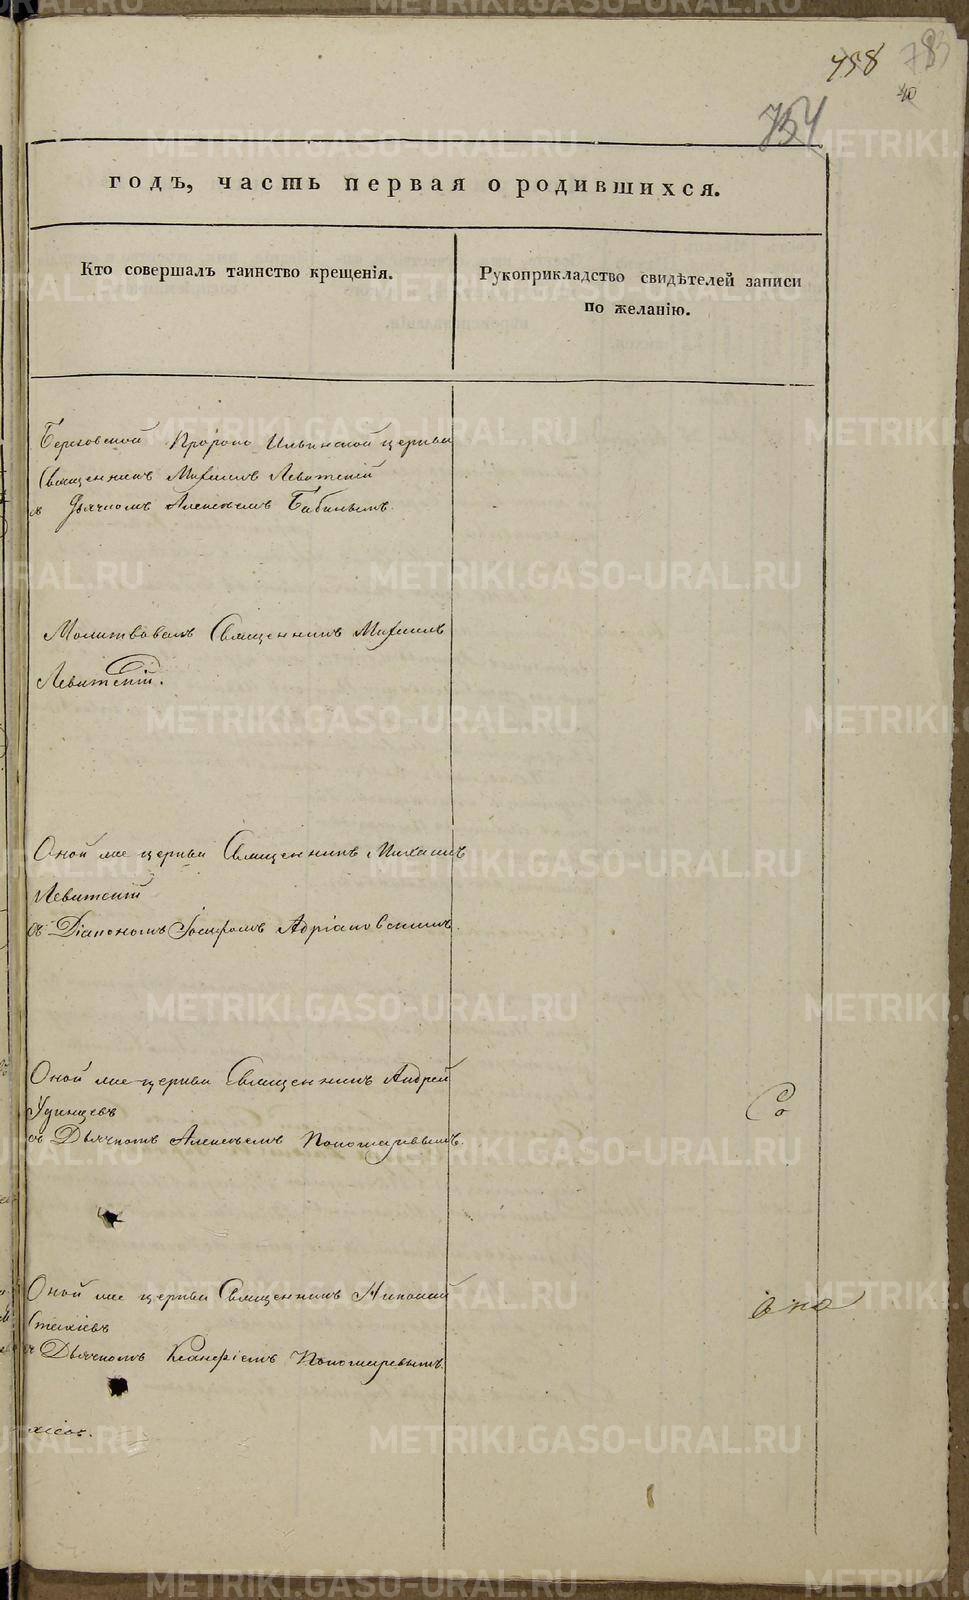 458
754
40
годъ, часть первая о родившихся.
Кто совершалъ таинство крещенія.
Рукоприкладство свидѣтелей записи
по желанію.
Березовской Пророко Ильинской церкви
Священникъ Михаилъ Левитскій
съ Дьячкомъ Алексѣемъ Бабинымъ.
Молитвовалъ Священникъ Михаилъ
Левитскій.
Оной же церкви Священникъ Михаилъ
Левитскій
съ Діакономъ Іосифомъ Адріановскимъ.
Оной же церкви Священникъ Андрей
Удинцевъ
съ Дьячкомъ Алексѣемъ Пономаревымъ.
Со
Оной же церкви Священникъ
Стахіевъ
съ Дьячкомъ Пономаревымъ.
METRIKI.GASO-URAL.RU